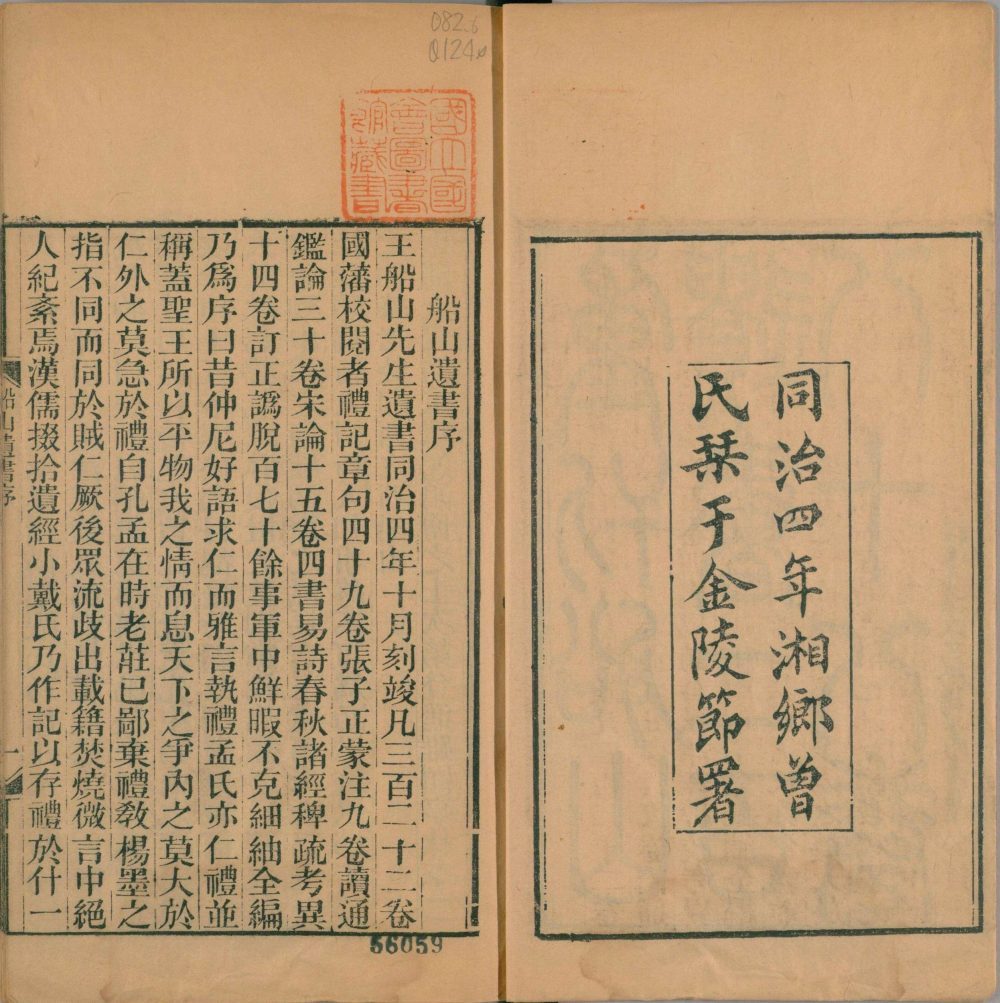 082.6
Q124
同治四年湘鄉曾
民栞于金陵節署
國立國
會圖書
館藏書
船山遺書序
王船山先生遺書同治四年十月刻竣凡三百二十二卷
國藩校閱者禮記章句四十九卷張子正蒙注九卷讀通
鑑論三十卷宋論十五卷四書易詩春秋諸經稗疏考異
十四卷訂正譌脫百七十餘事軍中鮮暇不克細紬全編
乃爲序曰昔仲尼好語求仁而雅言執禮孟氏亦仁禮並
稱蓋聖王所以平物我之情而息天下之爭內之莫大於
仁外之莫急於禮自孔孟在時老莊已鄙棄禮敎楊墨之
指不同而同於賊仁厥後眾流歧出載籍焚燒微言中絕
人紀紊焉漢儒掇拾遺經小戴氏乃作記以存禮於什一
船山遺書序
一
56059